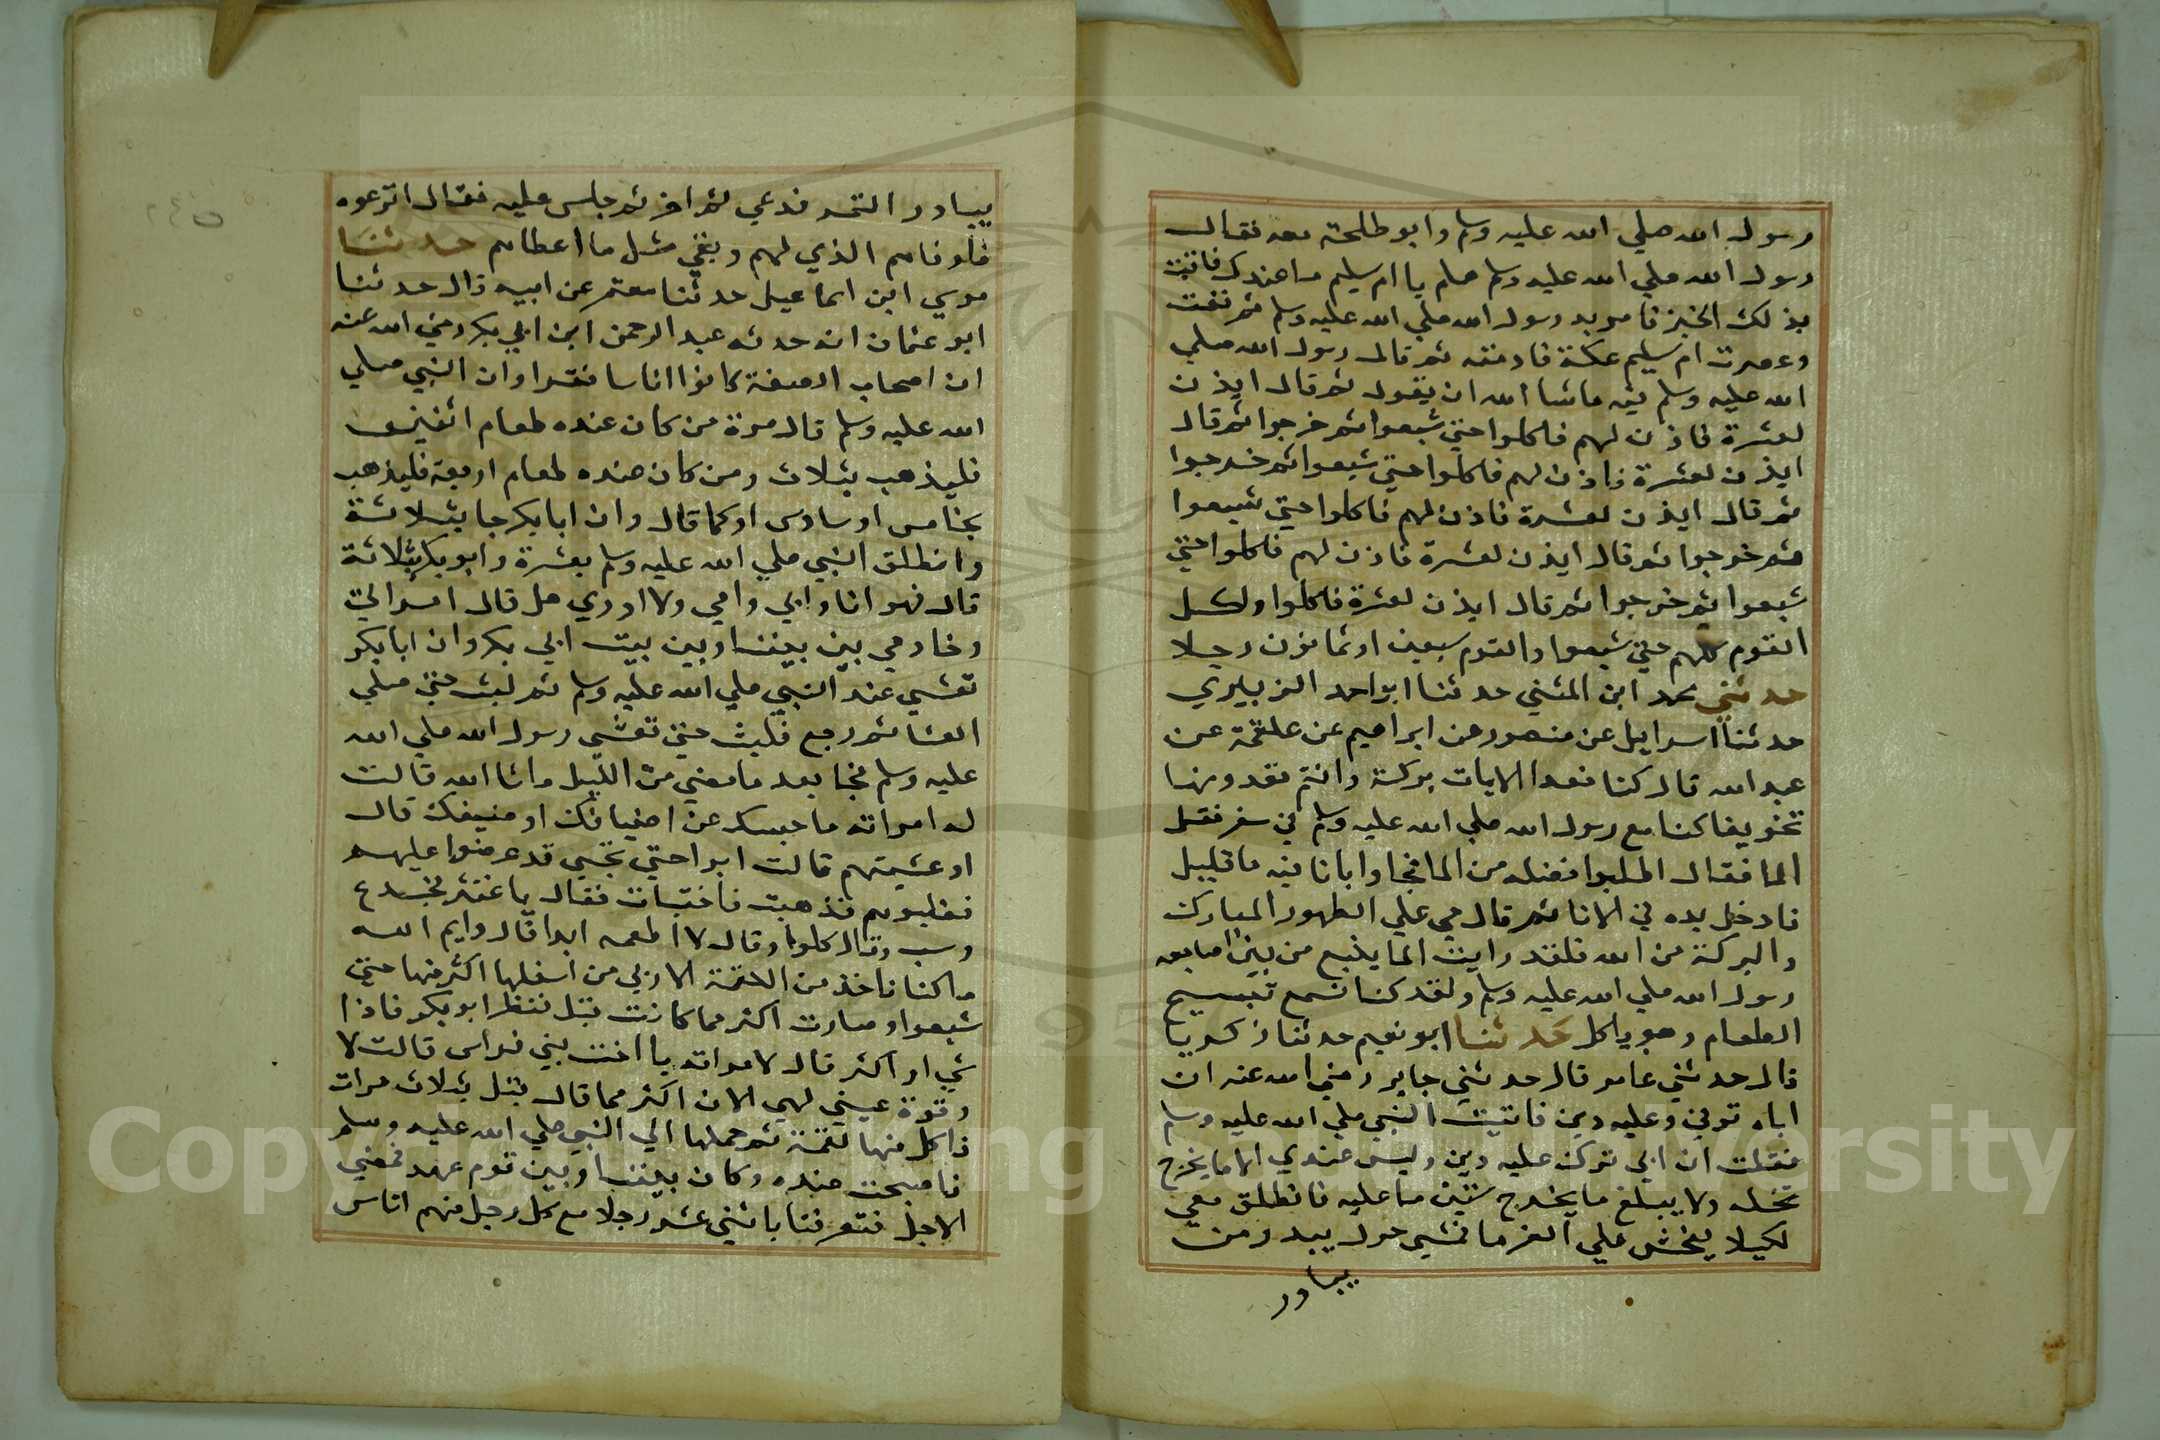 رسول الله صلي الله عليه وسلم وابو طلحة معه فقال
رسول الله صلي الله عليه وسلم هلم يا ام سليم ما عندك فاتت
بذلك الخبز فامر به رسول الله صلي الله عليه وسلم ثم ففت
وعصرت ام سليم عكة فادمته ثم قال رسول الله صلي
الله عليه وسلم فيه ماشا الله ان يقول ثم قال ايذن
لعشرة فاذن لهم فاكلوا حتي شبعوا ثم خرجوا ثم قال
ايذن لعشرة فاذن لهم فاكلوا حتي شبعوا ثم خرجوا
ثم قال ايذن لعشرة فاذن لهم فاكلوا حتي شبعوا
ثم خرجوا ثم قال ايذن لعشرة فاذن لهم فاكلوا حتي
شبعوا ثم خرجوا ثم قال ايذن لعشرة فاكلوا وكل
القوم كلهم حتي شبعوا والقوم سبعين او ثمانون رجلا
حدثني محمد ابن المثني حدثنا ابو احمد الزبيري
حدثنا اسراييل عن منصور عن ابراهيم عن علقمة عن
عبد الله قال كنا نعد الايات بركة وانتم تعدونها
تخويفا كنا مع رسول الله صلي الله عليه وسلم في سفر فقل
الما فقال اطلبوا فضلة من الما فجاوا بانا فيه ما قليل
فادخل يده في الانا ثم قال حي علي الطهور المبارك
والبركة من الله فلقد رايت الما ينبع من بين اصابعه
رسول الله صلي الله عليه وسلم ولقد كنا نسمع تسبيح
الطعام وهو ياكل حدثنا ابو نعيم حدثنا زكريا
قال حدثني عامر قال حدثني جابر رضي الله عنه ان
اباه توفي وعليه دين فاتيت النبي صلي الله عليه وسلم
فقلت ان ابي ترك عليه دين وليس عندي الا ما يخرج
نخله ولا يبلغ ما يخرج سنين ما عليه فانطلق معي
لكيلا يفحش علي الغرما فمشي حول بيدر من
بيادر
بيادر التمر فدعي ثم اخر ثم جلس عليه فقال انزعوه
فاوفاهم الذي لهم وبقي مثل ما اعطاهم حدثنا
موسي ابن اسماعيل حدثنا معتمر عن ابيه قال حدثنا
ابو عثمان انه حدثه عبد الرحمن ابن ابي بكر رضي الله عنه
ان اصحاب الصفة كانوا اناسا فقرا وان النبي صلي
الله عليه وسلم قال مرة من كان عنده طعام اثنين
فليذهب بثلاث ومن كان عنده طعام اربعة فليذهب
بخامس او سادس او كما قال وان ابا بكر جا بثلاثة
وانطلق النبي صلي الله عليه وسلم بعشرة وابو بكر بثلاثة
قال فهو انا وابي وامي ولا ادري هل قال امراتي
وخادمي بين بيتنا وبين بيت ابي بكر وان ابا بكر
تعشي عند النبي صلي الله عليه وسلم ثم لبث حتي صلي
العشا ثم رجع فلبث حتي تعشي رسول الله صلي الله
عليه وسلم فجا بعد ما مضي من الليل ماشا الله قالت
له امراته ما حبسك عن اضيافك او ضيفك قال
او عشيتهم قالت ابوا حتي تجي قد عرضوا عليهم
فغلبوهم فذهبت فاختبات فقال يا غنثر فجدع
وسب وقال كلوا وقال لا اطعمه ابدا قال وايم الله
ما كنا ناخذ من اللقمة الا ربي من اسفلها اكثر منها حتي
شبعوا وصارت اكثر مما كانت قبل فنظر ابو بكر فاذا
شي او اكثر قال لامراته يا اخت بني فراس قالت لا
وقرة عيني لهي الان اكثر مما قال قبل بثلاث مرات
فاكل منها لقمة ثم حملها الي النبي صلي الله عليه وسلم
فاصبحت عنده وكان بيننا وبين قوم عهد فمضي
الاجل فتعرفنا باثني عشر رجلا مع كل رجل منهم اناس